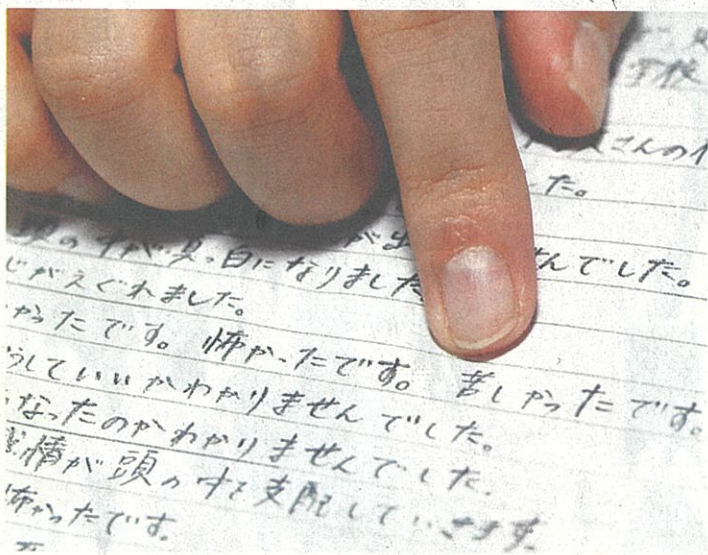 学校
さんの
た。
頭の中が真っ白になりました が出 せんでした。
じがえぐれました。
かったです。怖かったです。苦しかったです。
うしていいかわかりませんでした。
なったのかわかりませんでした。
感情が頭の中を支配していきます。
怖かったです。